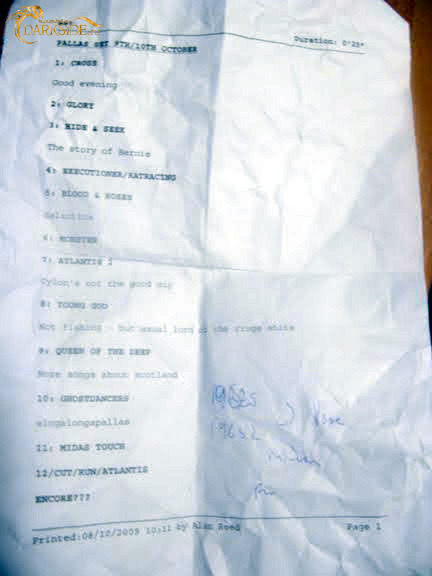 DARKSIDE
PALLAS SET 9TH/10TH OCTOBER
Duration: 0'25"
1: CROSS
Good evening
2: GLORY
3: HIDE & SEEK
The story of Bernie
4: EXECUTIONER/RATRACING
5: BLOOD & ROSES
6: MONSTER
7: ATLANTIS
Cylon's not the good guy
8: YOUNG GOD
Not fishing - but usual lord of the rings shite
9: QUEEN OF THE DEEP
More songs about scotland
10: GHOSTDANCERS
singalongapallas
11: MIDAS TOUCH
12/CUT/RUN/ATLANTIS
ENCORE???
Printed:08/10/2009 10:11 by Alan Reed
Page 1